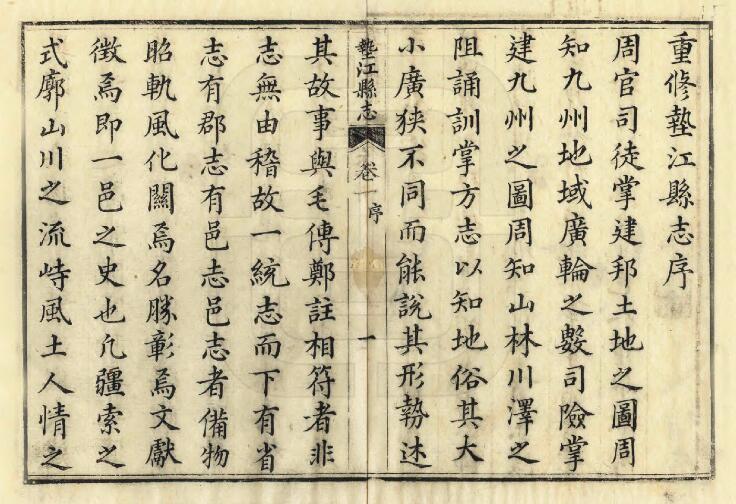 重修墊江縣志序
周官司徒掌建邦土地之圖周
知九州地域廣輪之數司險掌
建九州之圖周知山林川澤之
阻誦訓掌方志以知地俗其大
小廣狹不同而能說其形勢述
墊江縣志 卷一 序 一
其故事與毛傳鄭註相符者非
志無由稽故一統志而下有省
志有郡志有邑志邑志者備物
昭軌風化關焉名勝彰焉文獻
徵焉即一邑之史也凢疆索之
式廓山川之流峙風土人情之